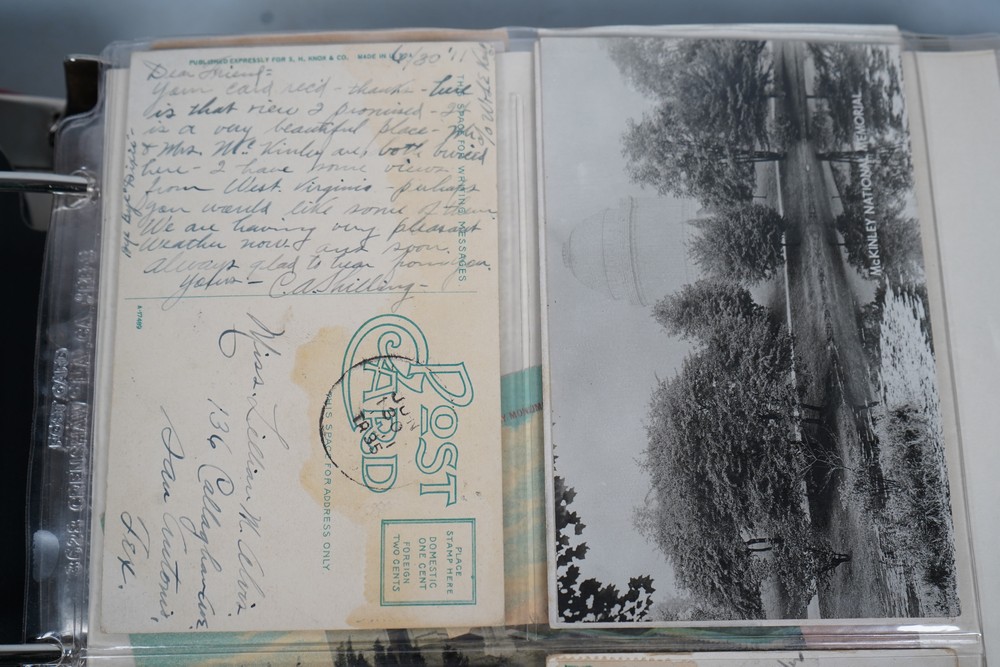 PUBLISHED EXPRESSLY FOR S. H. KNOX & CO. MADE IN U.S.A.
6/30 '11
Dear Friend:-
Your card rec'd - thanks - here
is that view I promised - It
is a very beautiful place - Mr.
& Mrs. McKinley are both buried
here - I have some views
from West Virginia - perhaps
you would like some of them
We are having very pleasant
Weather now, and soon,
Always glad to hear from you.
Yours - C.A. Shilling -
THIS SPACE FOR WRITING MESSAGES
A-17489
POST
CARD
JUN
30
THIS SPACE FOR ADDRESS ONLY
PLACE
STAMP HERE
DOMESTIC
ONE CENT
FOREIGN
TWO CENTS
Miss Lillian M.
136 Callaghan Ave.
San Antonio,
Tex.
McKINLEY NATIONAL MEMORIAL